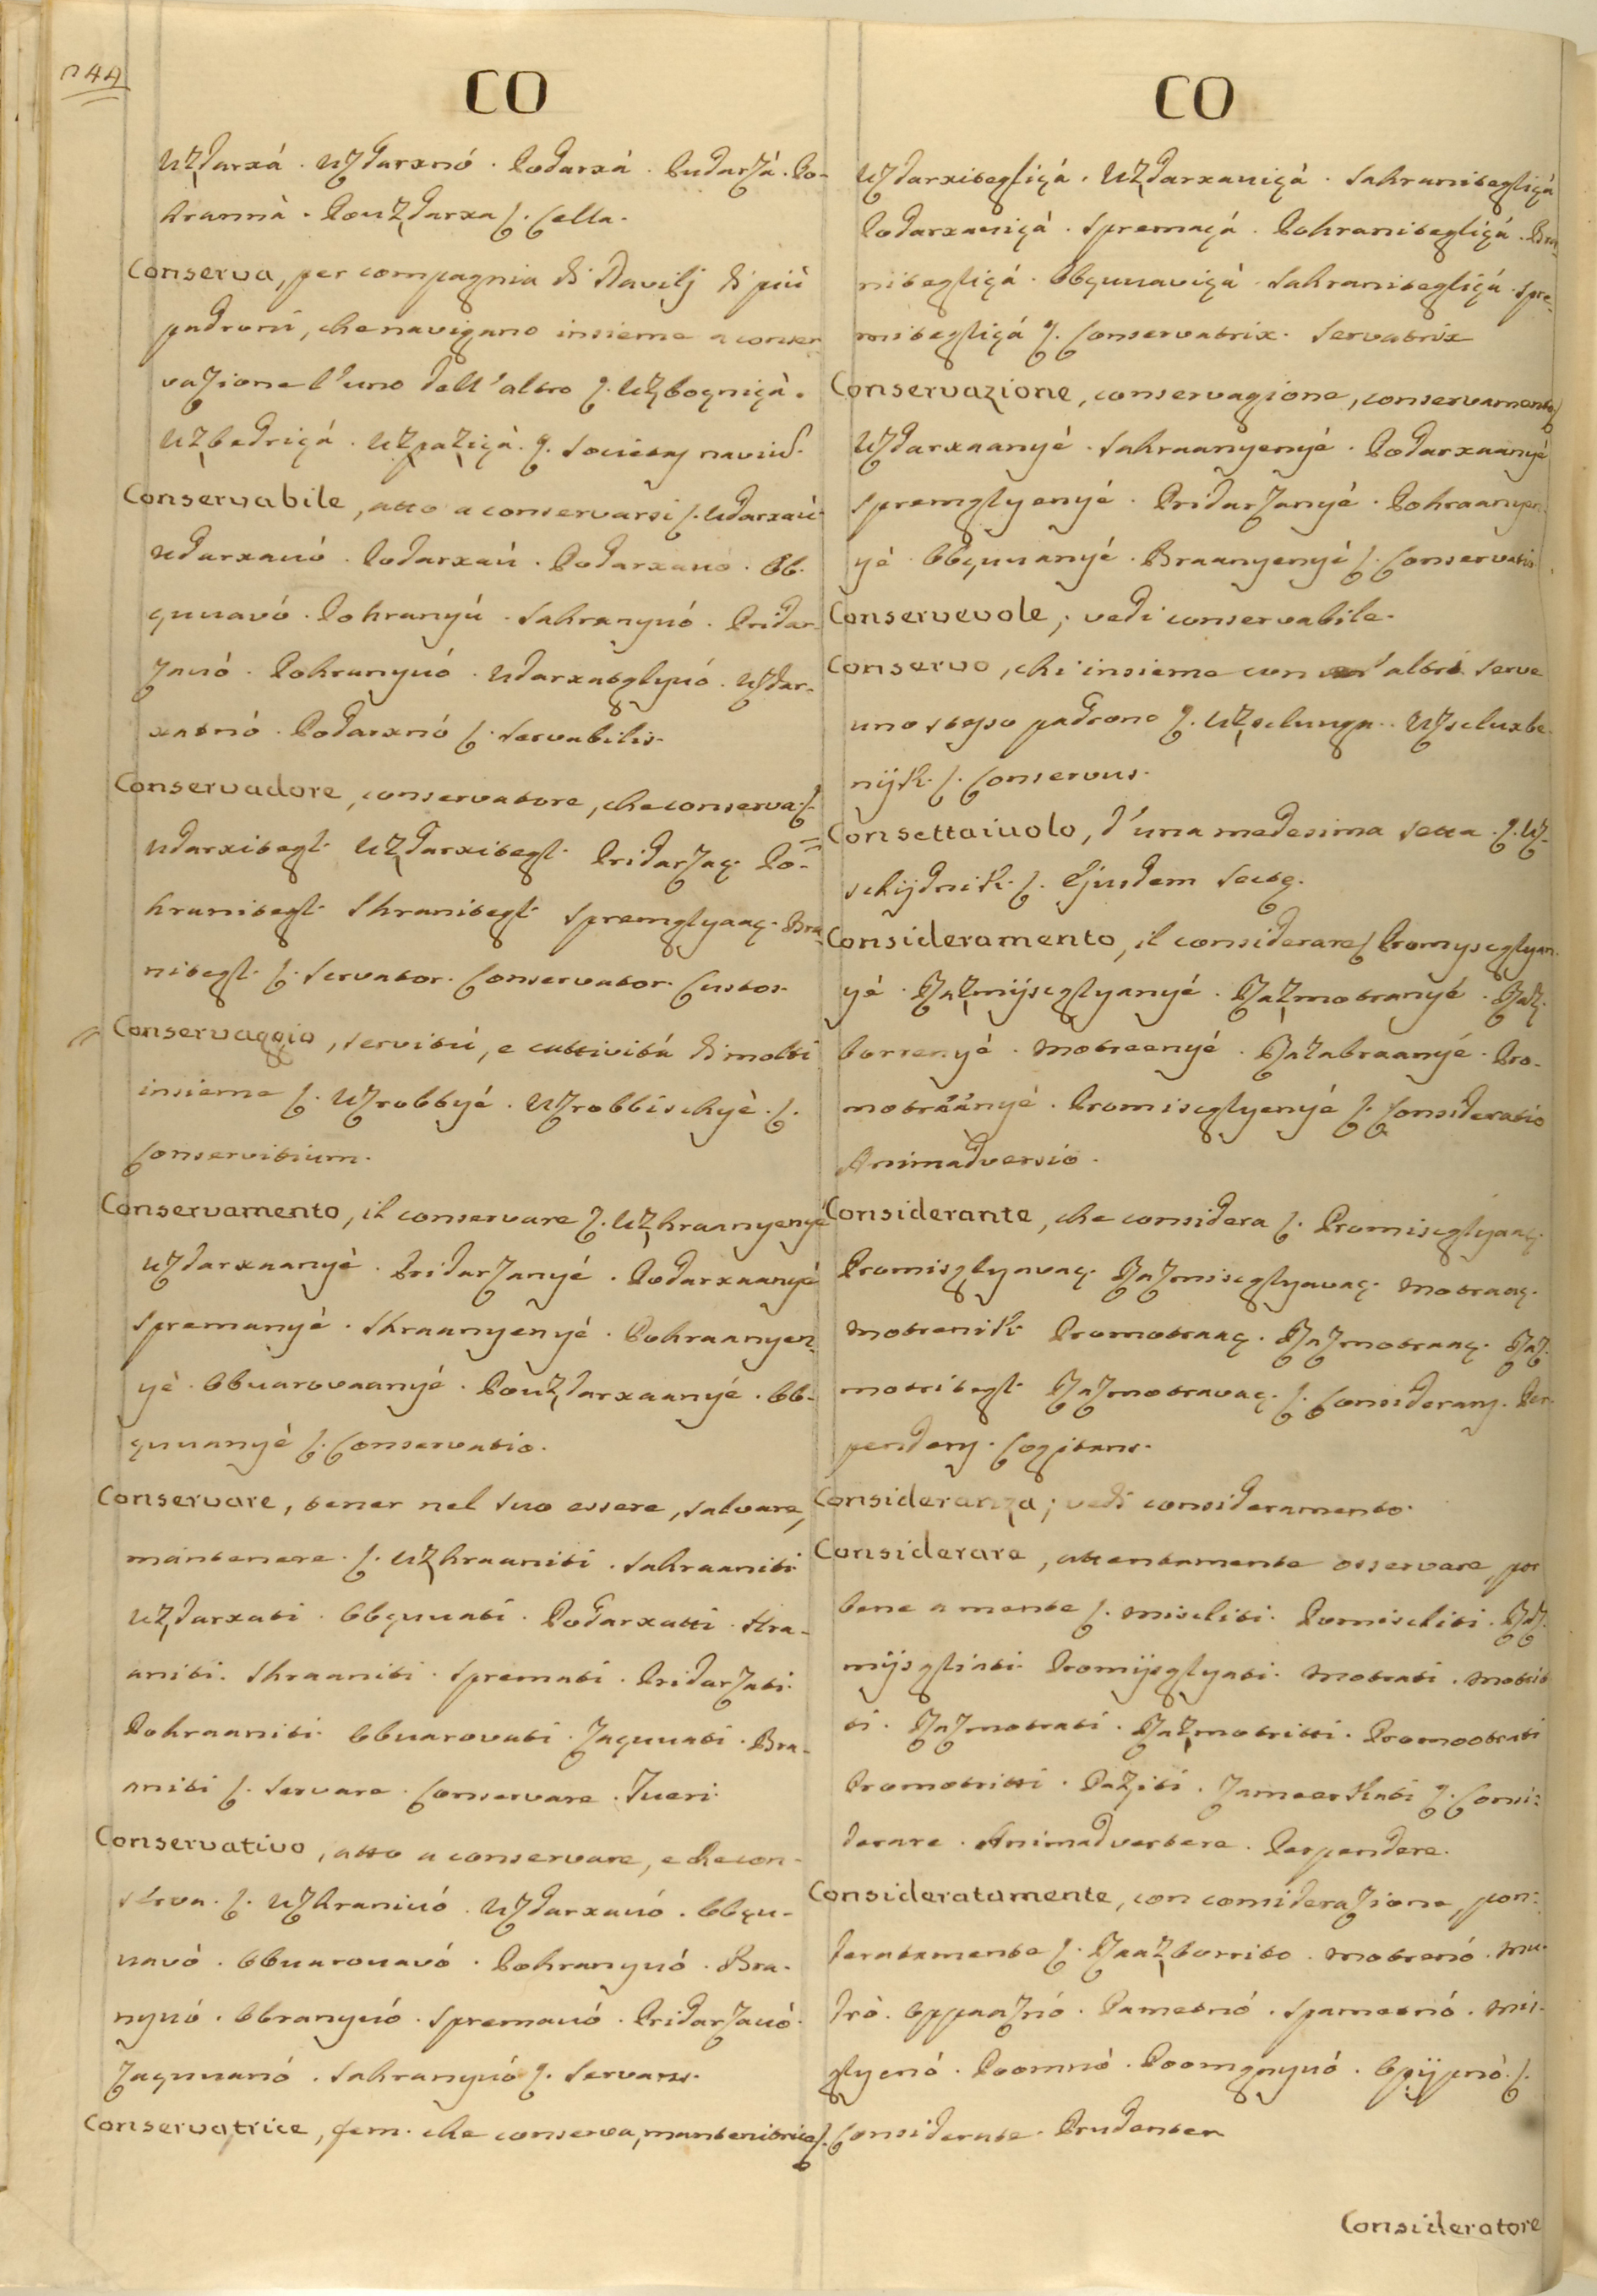 244
CO
Uzdarxá. Uzdarxnó. Podarxá. Pudarzá. Po-
hranná. Pouzdarxa ſ. Cella.
Conserva, per compagnia di Navilj di più
padroni, che navigano insieme a conser-
vazione l'uno dell'altro ſ. Uzbogniçà.
Uzbedriçá. Uzpaziçà. ſ. Societas naviũ.
Conservabile, atto a conservarsi ſ. Udarxaú.
Udarxauó. Podarxaú. Podarxauó. Ob-
çuuavó. Pohranyú. Sahranyuó. Pridar-
zauó. Pohranyuó. Udarxateglyuó. Uzdar-
xatnó. Podarxnó ſ. Servabilis.
Conservadore, conservatore, che conserva. ſ.
Udarxitegl. Uzdarxitegl. Pridarzaç. Po-
hranitegl. Shranitegl. Spremglyaaç. Bra-
nitegl. ſ. Servator. Conservator. Custos.
Conservaggio, servitú, e cattivitá di molti
insieme ſ. Uzrobbyé. Uzrobbischyè. ſ.
Conservitium.
Conservamento, il conservare ſ. Uzhraanyenyé
Uzdarxaanyè. Pridarzanyé. Podarxaanyé
Spremanyè. Shraanyenyé. Pohraanyen-
yè. Obuarovaanyé. Pouzdarxaanyé. Ob-
çuuanyè ſ. Conservatio.
Conservare, tener nel suo essere, salvare,
mantenere. ſ. Uzhraaniti. Sahraaniti
Uzdarxati. Obçuuati. Podarxatti. Hra-
aniti. Shraaniti. Spremati. Pridarzati.
Pohraaniti. Obuarovati. Zaçuuati. Bra-
aniti ſ. Servare. Conservare. Tueri.
Conservativo, atto a conservare, e che con-
serva. ſ. Uzhraniuó. Uzdarxauó. Obçu-
uavó. Obuarouavó. Pohranyuó. Bra-
nyuó. Obranyuó. Spremauó. Pridarzauó.
Zaçuuanó. Sahranyuó ſ. Servans.
Conservatrice, fem. che conserva, mantenitrice ſ.
CO
Uzdarxitegliçá. Uzdarxauiçà. Sahranitegliçá
Podarxauiçá. Spremaçá. Pohranitegliçá. Bra-
nitegliçá. Obçuuaviçà. Sahranitegliçá. Spre-
mitegliçá ſ. Conservatrix. Servatrix
Conservazione, conservagione, conservamento
Uzdarxaanyé. Sahraanyenyé. Podarxaanyé
Spremglyenyé. Pridarzanyé. Pohraanyen-
yè. Obçuuanyé. Braanyenyé ſ. Conservatio.
Conservevole; vedi conservabile.
Conservo, chi insieme con altri serve
uno stesso padrone ſ. Uzsclunga. Uzscluxbe-
nijk. ſ. Conservus.
Consettaiuolo, d'una medesima setta. ſ. Uz-
schijdnik. ſ. Ejusdem Sectę.
Consideramento, il considerare ſ. Promyseglyan-
yé. Razmijseglyanyé. Razmotranyé. Raz-
borrenyè. Motreenyé. Razabraanyé. Pro-
motráányè. Promiseglyenyé ſ. Consideratio
Animadversio.
Considerante, che considera ſ. Promiseglyaaç.
Promisglyavaç. Razmiseglyavaç. Motraaç.
Motrenik. Promotraaç. Razmotraaç. Raz-
motritegl. Razmotravaç. ſ. Considerans. Per-
pendens. Cogitans.
Consideranza; vedi consideramento.
Considerare, attentamente osservare, por
bene a mente ſ. Misliti. Pomisliti. Raz-
mijsgliati. Promijsglyati. Motrati. Motrit-
ti. Razmotrati. Razmotritti. Promootrati
Promotritti. Paziti. Zameerkati ſ. Consi-
derare. Animadvertere. Perpendere.
Consideratamente, con considerazione, pon-
deratamente ſ. Raazborrito. Motrenó. Mu-
drò. Oppaaznó. Pametnó. Spametnó. Mis-
glyenó. Poomnó. Poomgnyuó. Opijpnó. ſ.
Considerate. Prudenter
Consideratore